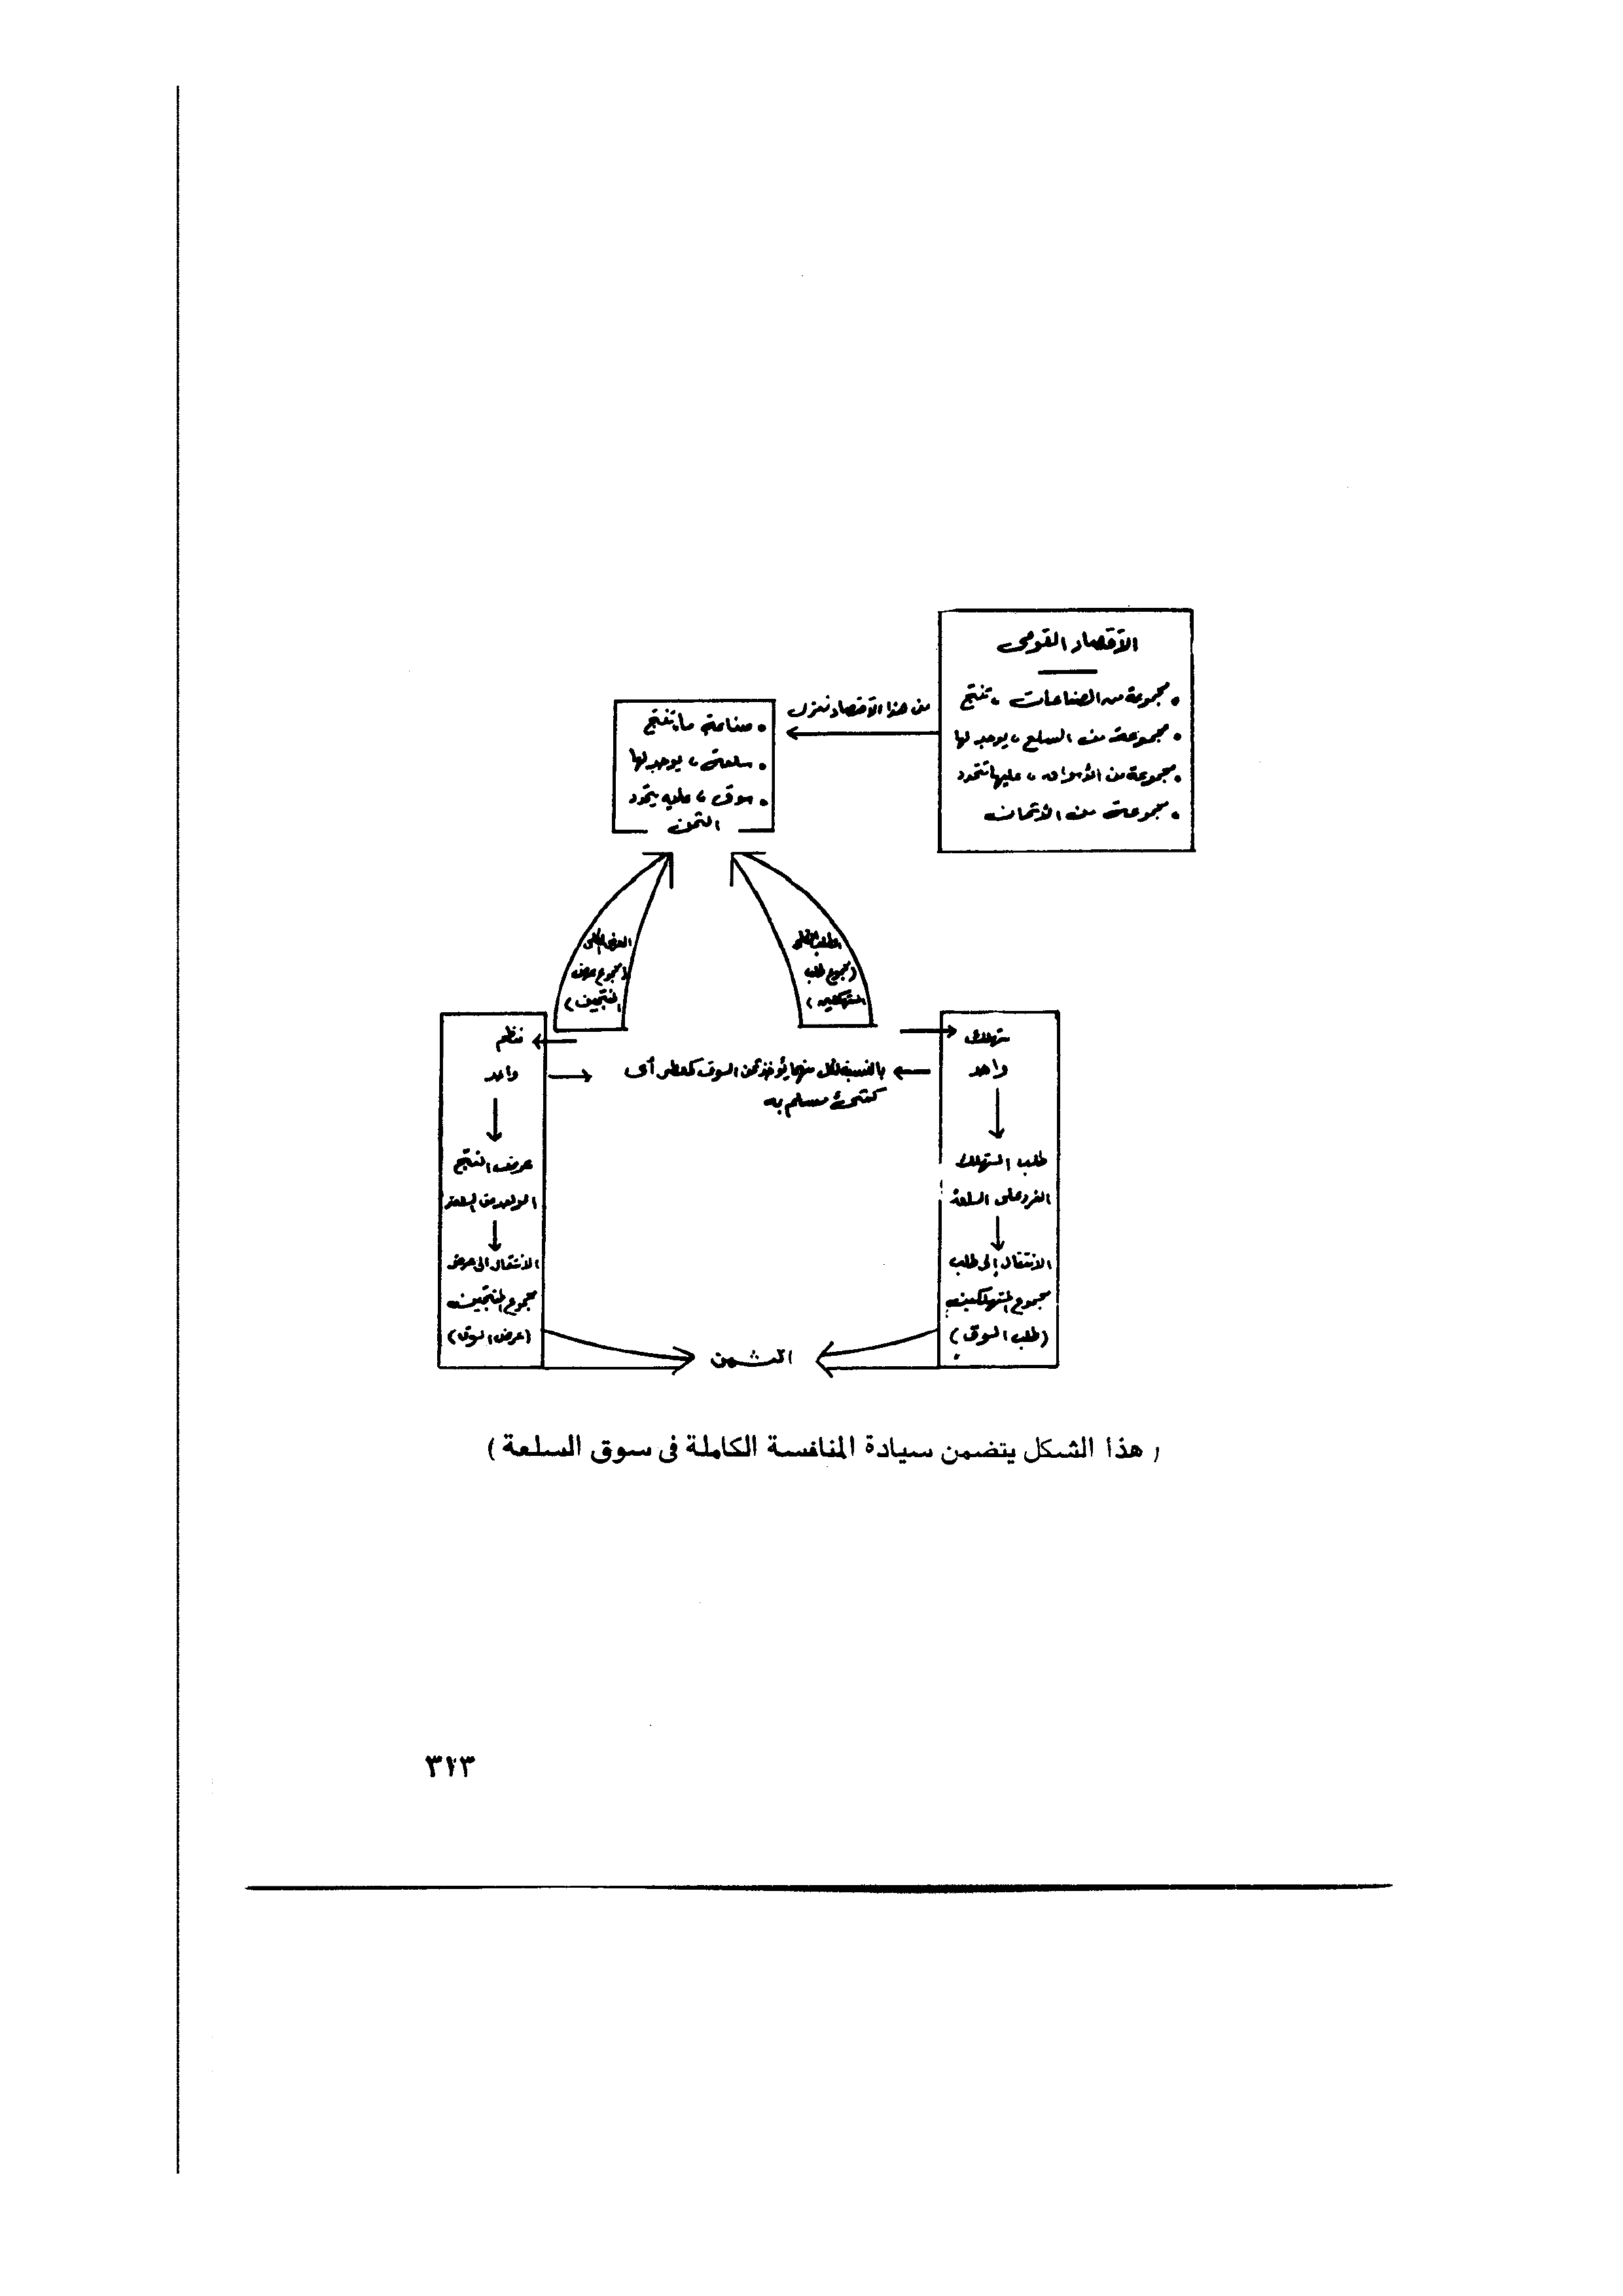 الاقتصاد القومى
• مجموعة من الصناعات ، تنتج
• مجموعة من السلع ، يوجد لها
• مجموعة من الأسواق ، عليها تتحدد
• مجموعة من الأثمان
من هذا الاقتصاد نعزل
• صناعة ما، تنتج
• سلعة ، يوجد لها
• سوق ، عليه يتحدد
الثمن
الطلب الكلى
( مجموع طلب
المستهلكين )
العرض الكلى
( مجموع عرض
المنتجين )
مستهلك
واحد
طلب المستهلك
الفرد على السلعة
الانتقال إلى طلب
مجموع المستهلكين
( طلب السوق )
بالنسبة لكل منهما يؤخذ ثمن السوق كمعطى أى
كشىء مسلم به
منظم
واحد
عرض المنتج
الواحد من السلعة
الانتقال الى عرض
مجموع المنتجين
( عرض السوق )
الثمن
( هذا الشكل يتضمن سيادة المنافسة الكاملة فى سوق السلعة )
٣١٣